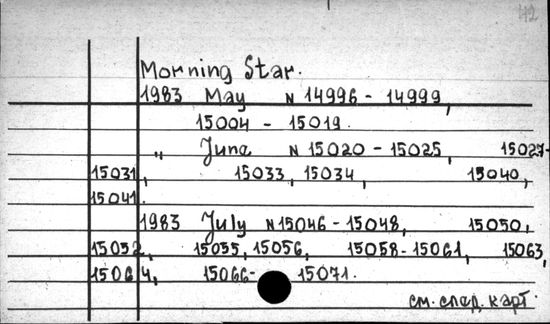 42
Morning Star.
1983 May N 14996 - 14999,
15004 - 15019.
„ June N 15020 - 15025, 15027-
15031, 15033, 15034, 15040,
15041.
1983 July N 15046 - 15048, 15050,
15052, 15055, 15056, 15058 - 15061, 15063,
15064, 15066 - 15071.
см. след. карт.